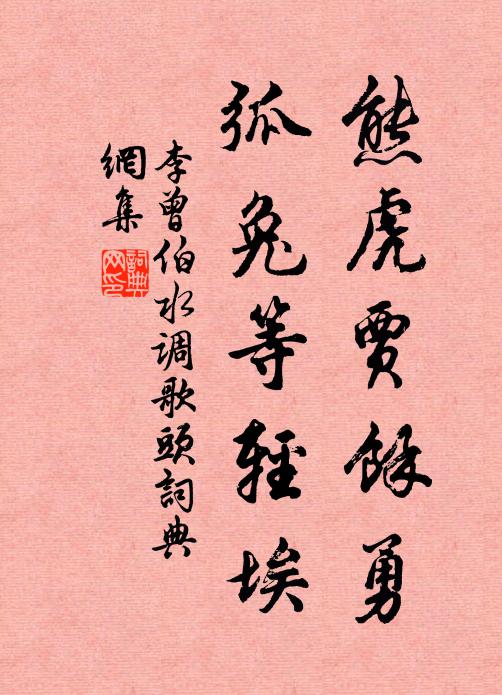 熊虎賈餘勇
弧兔等輕埃
李曾伯水调歌頭詞典
網集
詞典
网印